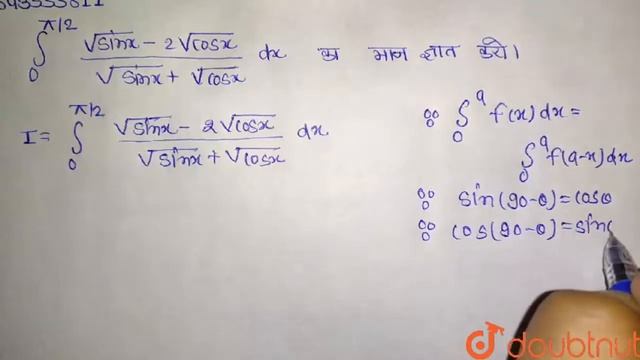 ∫₀^π/2 (√sinx - 2√cosx)/(√sinx + √cosx) dx का मान ज्ञात करो।
I = ∫₀^π/2 (√sinx - 2√cosx)/(√sinx + √cosx) dx
∵ ∫₀^a f(x)dx =
∫₀^a f(a-x)dx
∵ sin(90-θ)=cosθ
∵ cos(90-θ)=sin
doubtnut